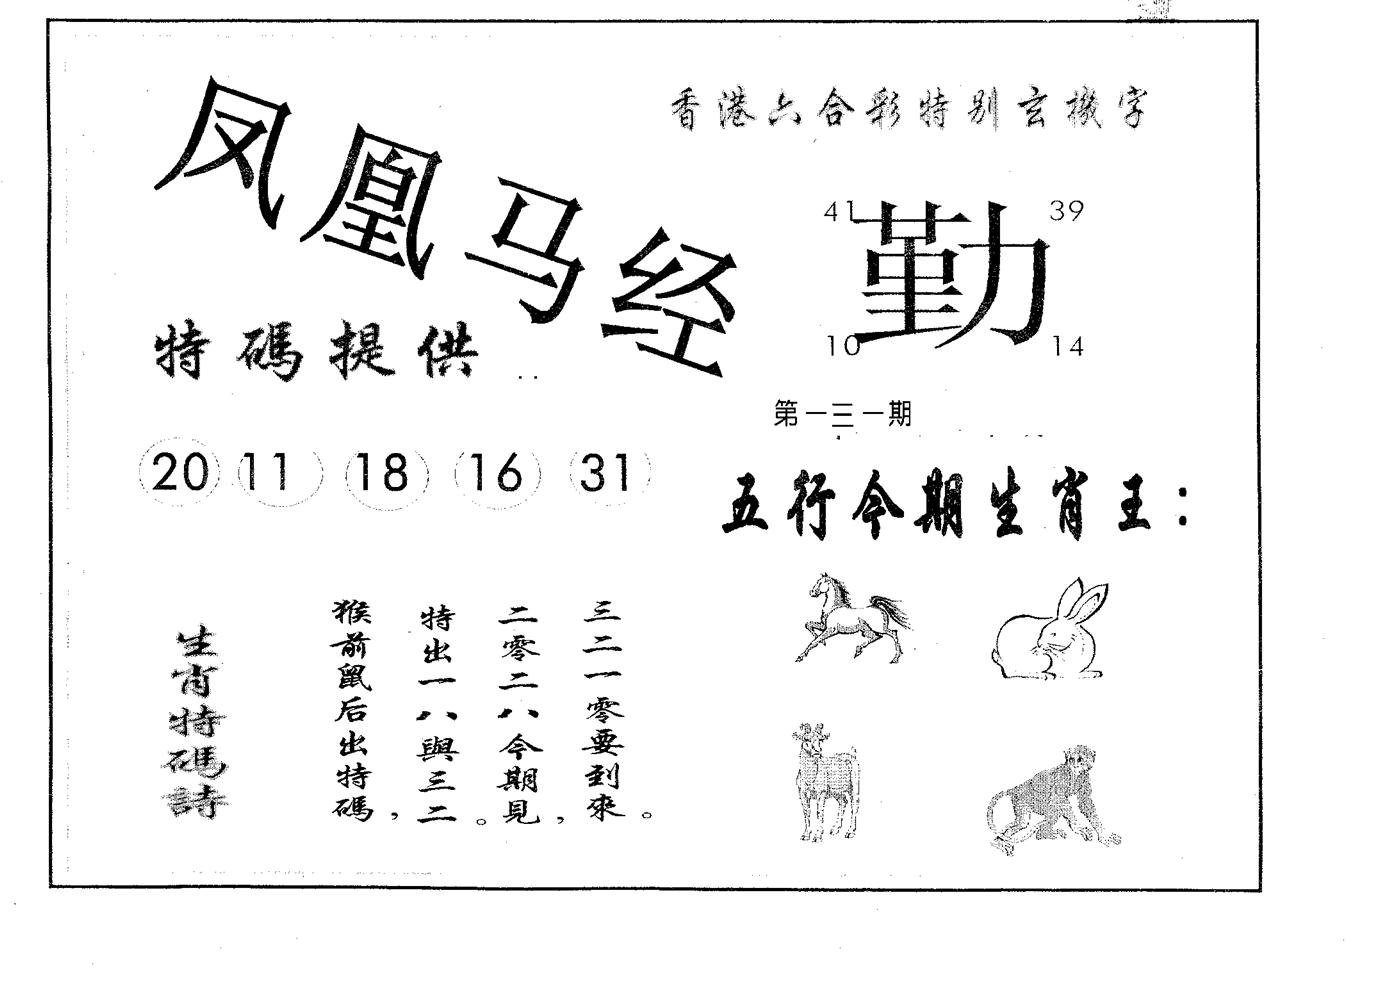 香港六合彩特别玄機字
凤凰马经
41 39
勤
10 14
特碼提供
第一三一期
20 11 18 16 31
五行今期生肖王：
生肖特碼詩
猴前鼠后出特碼，
特出一八與三二。
二零二八今期見，
三二一零要到來。